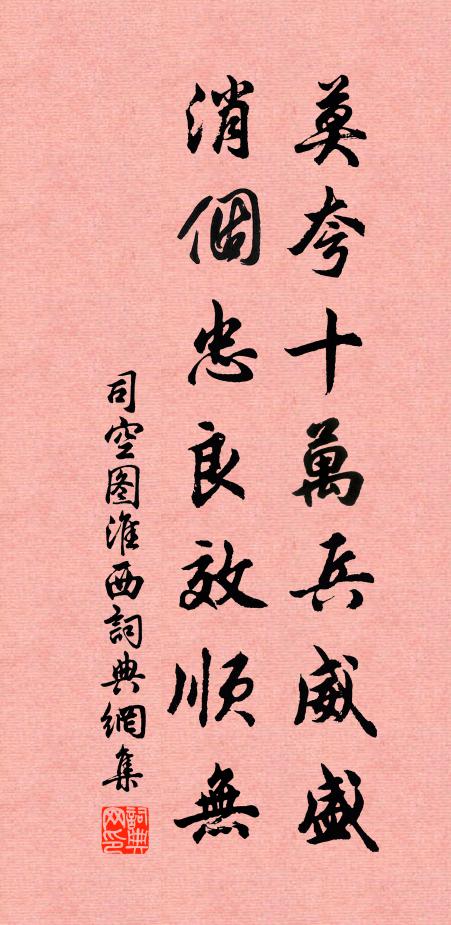 莫夸十萬兵威盛
消個忠良效順無
司空图淮西詞典網集
詞典网印